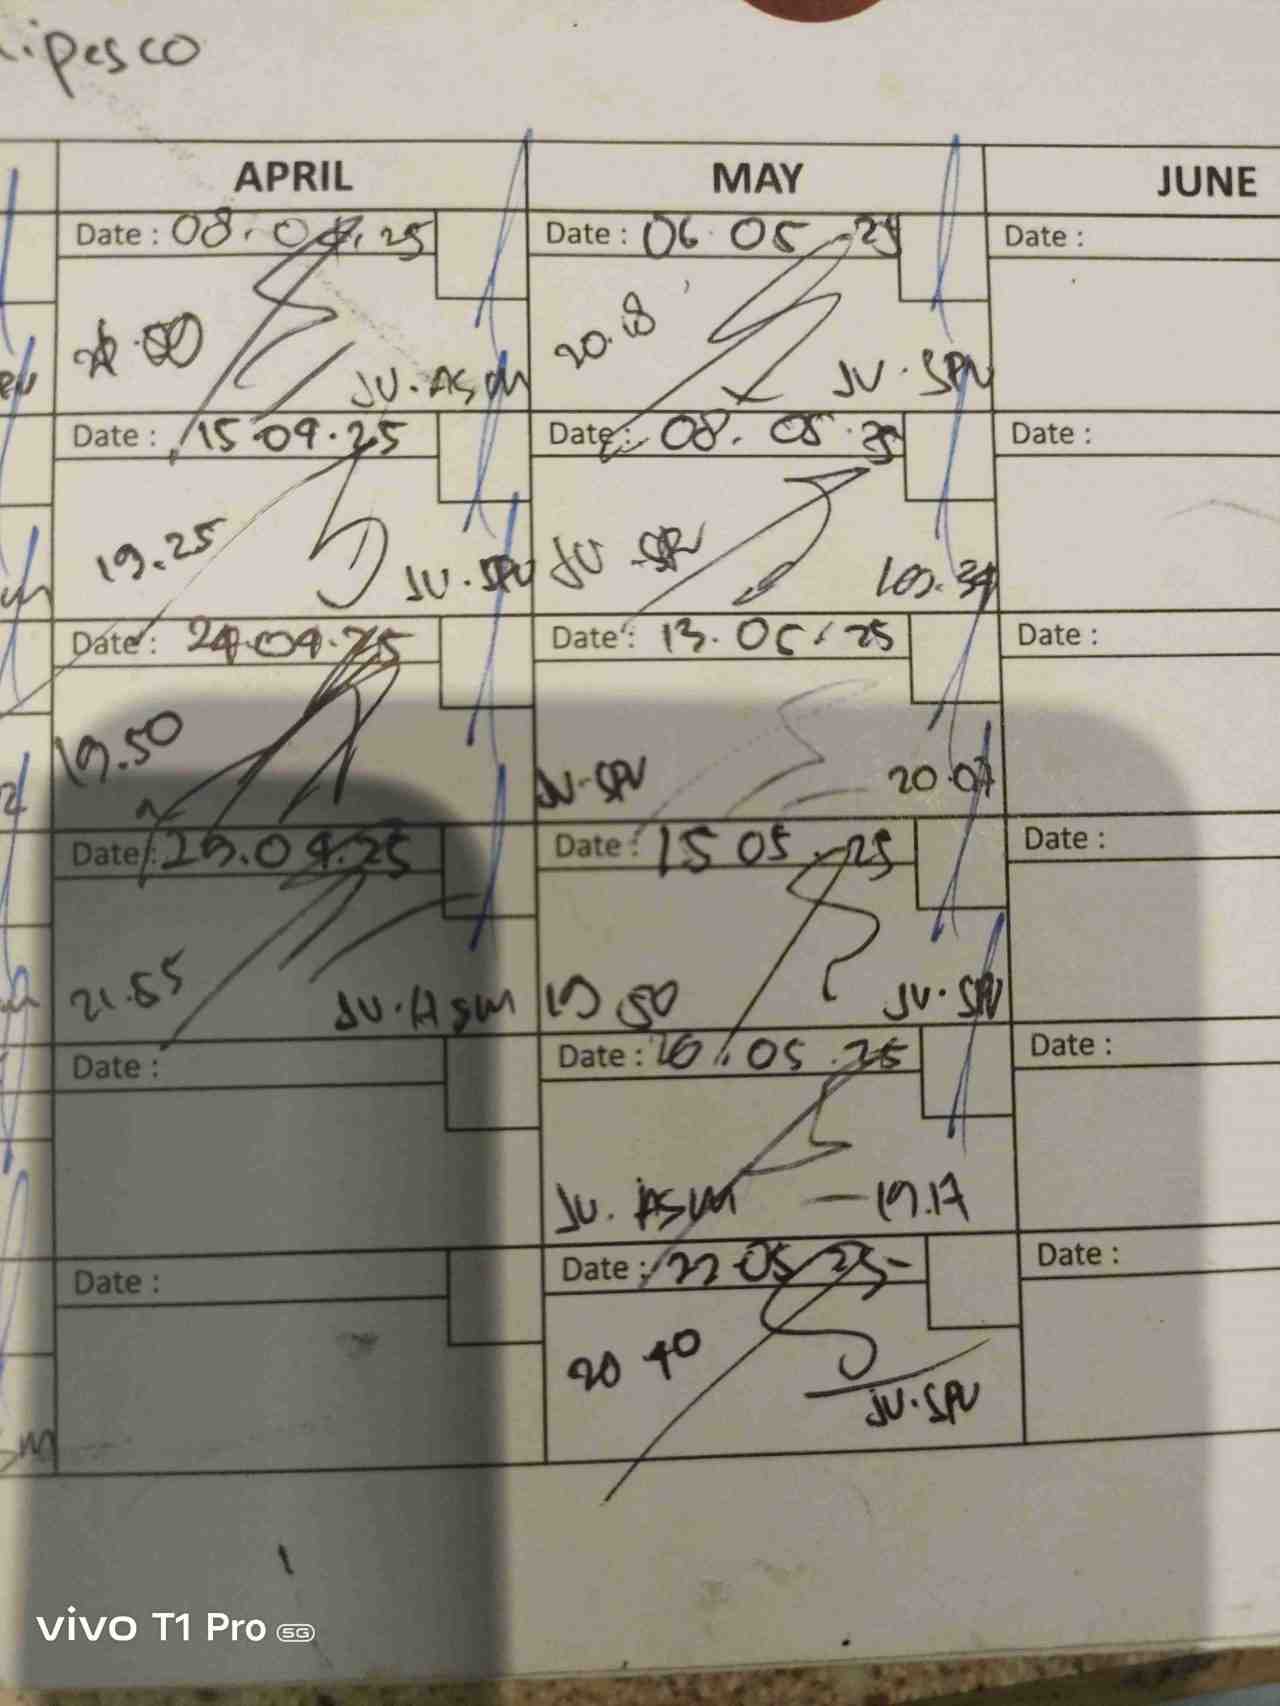 APRIL
MAY
JUNE
Date : 08.04.25
JU.ASM
Date : 15 04.25
19.25
JU.SPV
Date : 24.04.25
19.50
Date : 29.04.25
21.55
JU.ASM
Date :
Date :
Date : 06 05 .25
20.18
JU.SPV
Date : 08. 05 .25
JU.SPV
Date : 13. 05. 25
JU-SPV
20.07
Date : 15 05 .25
19 50
JU.SPV
Date : 20.05.25
JU. ASM
19.17
Date : 22 05 25-
20 40
JU.SPV
Date :
Date :
Date :
Date :
Date :
Date :
vivo T1 Pro 5G